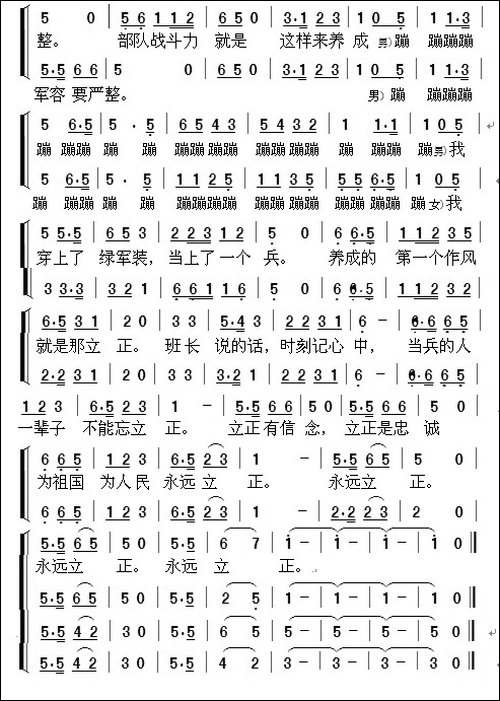 5 0 | 5 6 1 1 2 | 6 5 0 | 3·1 2 3 | 1 0 5 | 1 1·3 |
整。 部队战斗力 就是 这样来养 成 男)蹦 蹦蹦蹦
5·5 6 6 | 5 0 | 6 5 0 | 3·1 2 3 | 1 0 5 | 1 1·3 |
军容 要严整。 男)蹦 蹦蹦蹦
5 6·5 | 5 · 5 | 6 5 4 3 | 5 4 3 2 | 1 1·1 | 1 0 5 |
蹦 蹦蹦 蹦 蹦 蹦蹦蹦蹦 蹦蹦蹦蹦 蹦 蹦蹦 蹦男)我
5 6·5 | 5 · 5 | 1 1 2 5 | 1 1 3 5 | 5 5 6·5 | 1 0 5 |
蹦 蹦蹦 蹦 蹦 蹦蹦蹦蹦 蹦蹦蹦蹦 蹦蹦蹦蹦 蹦女)我
5 5·5 | 6 5 3 | 2 2 3 1 2 | 5 0 | 6 6·5 | 1 1 2 3 5 |
穿上了 绿军装，当上了一个 兵。 养成的 第一个作风
3 3·3 | 3 2 1 | 6 6 1 1 6 | 5 0 | 6 6·5 | 1 1 2 3 2 |
6·5 3 1 | 2 0 | 3 3 | 5·4 3 | 2 2 3 1 | 6 – | 6·6 6 5 |
就是那立 正。 班长 说的话，时刻记心 中， 当兵的人
2·2 3 1 | 2 0 | 3 3 | 3·2 1 | 2 2 3 1 | 6 – | 6·6 6 5 |
1 2 3 | 6·5 2 3 | 1 – | 5·5 6 6 | 5 0 | 5·5 6 6 | 5 0 |
一辈子 不能忘立 正。 立正有信 念，立正是忠 诚
6 6 5 | 1 2 3 | 6·5 2 3 | 1 – | 5·5 6 5 | 5 0 |
为祖国 为人民 永远立 正。 永远立 正。
6 6 5 | 1 2 3 | 6·5 2 3 | 1 – | 2·2 2 3 | 2 0 |
5·5 6 5 | 5 0 | 5·5 | 6 7 | 1 – | 1 – | 1 – | 1 0 ‖
永远立 正。 永远 立 正。
5·5 6 5 | 5 0 | 5·5 | 2 5 | 1 – | 1 – | 1 – | 1 0 ‖
5·5 4 2 | 3 0 | 5·5 | 6 5 | 5 – | 5 – | 5 – | 5 0 ‖
5·5 4 2 | 3 0 | 5·5 | 4 2 | 3 – | 3 – | 3 – | 3 0 ‖